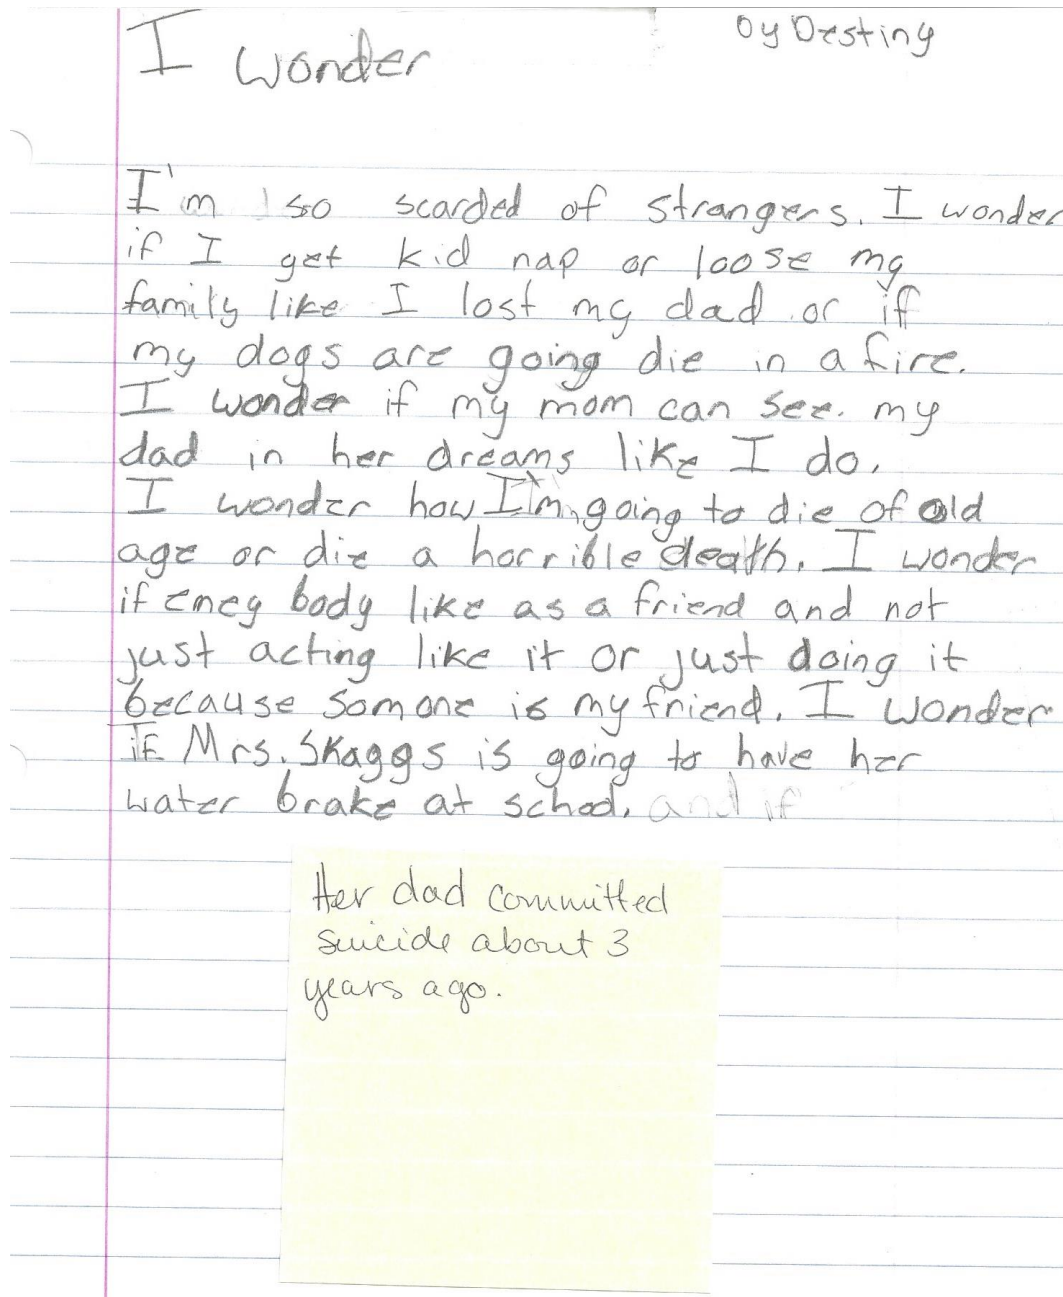 I wonder
by Destiny
I'm so scarded of strangers. I wonder
if I get kid nap or loose my
family like I lost my dad or if
my dogs are going die in a fire.
I wonder if my mom can see my
dad in her dreams like I do.
I wonder how I'm going to die of old
age or die a horrible death. I wonder
if emey body like as a friend and not
just acting like it or just doing it
because somone is my friend. I wonder
if Mrs. Skaggs is going to have her
water brake at school. and if
Her dad committed
suicide about 3
years ago.